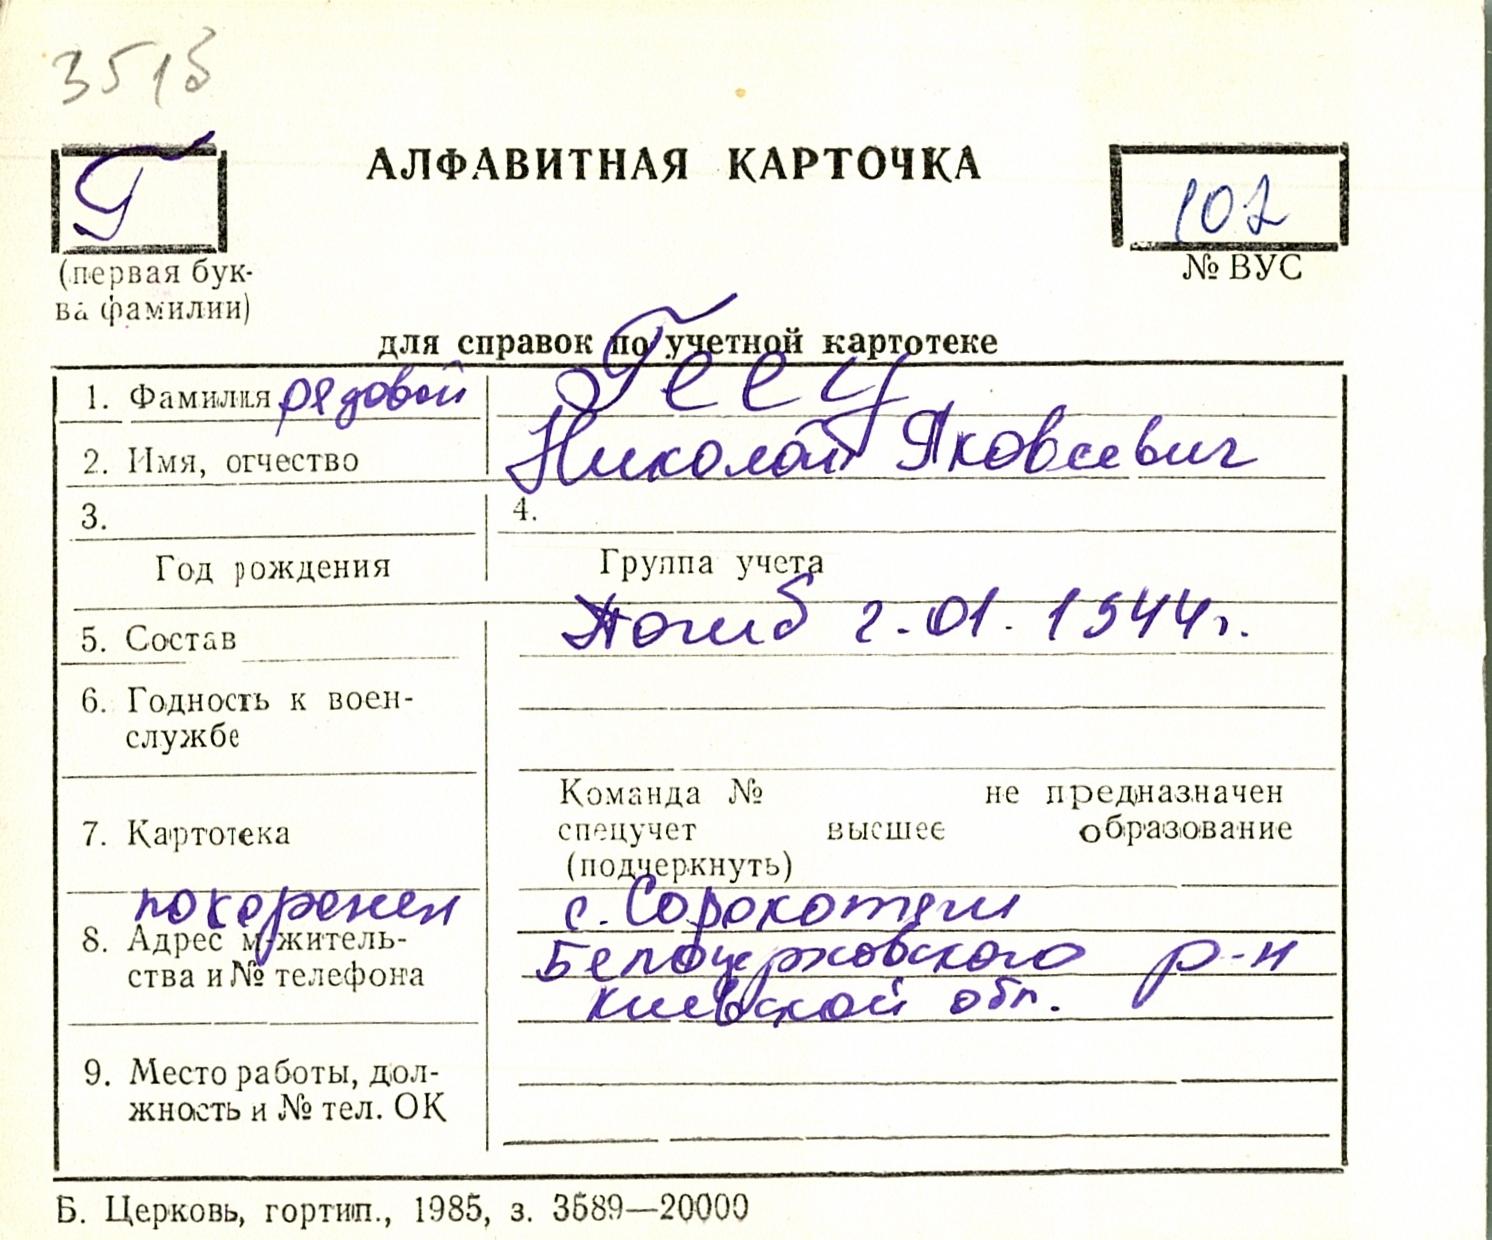 3515
Г
АЛФАВИТНАЯ КАРТОЧКА
102
(первая бук-
ва фамилии)
№ ВУС
для справок по учетной картотеке
1. Фамилия рядовой Геец
2. Имя, отчество Николай Яковлевич
3. 4.
Год рождения Группа учета
5. Состав Погиб 2.01.1944г.
6. Годность к воен-
службе
Команда № не предназначен
7. Картотека спецучет высшее образование
(подчеркнуть)
похоронен с. Сорокотяги
8. Адрес м-житель- Белоцерковского р-н
ства и № телефона Киевской обл.
9. Место работы, дол-
жность и № тел. ОК
Б. Церковь, гортип., 1985, з. 3589—20000